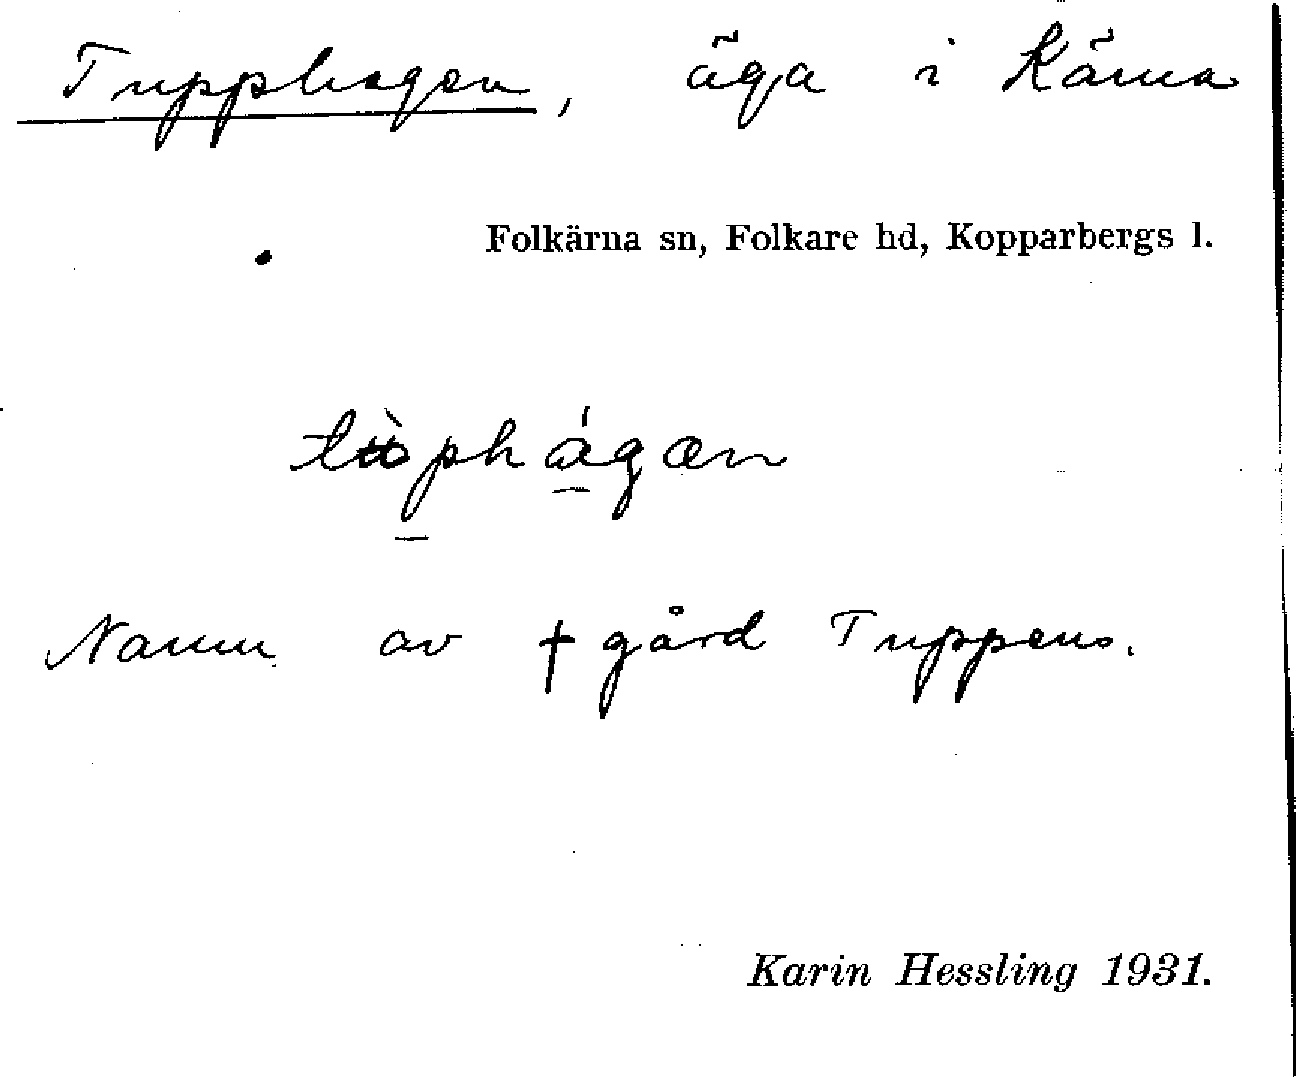 Tupphagen, äga i Kärna
Folkärna sn, Folkare hd, Kopparbergs l.
Namn av † gård Tuppens.
Karin Hessling 1931.